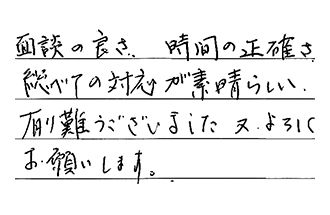 面談の良さ、時間の正確さ
総べての対応が素晴らしい、
有り難うございました 又、よろしく
お願いします。